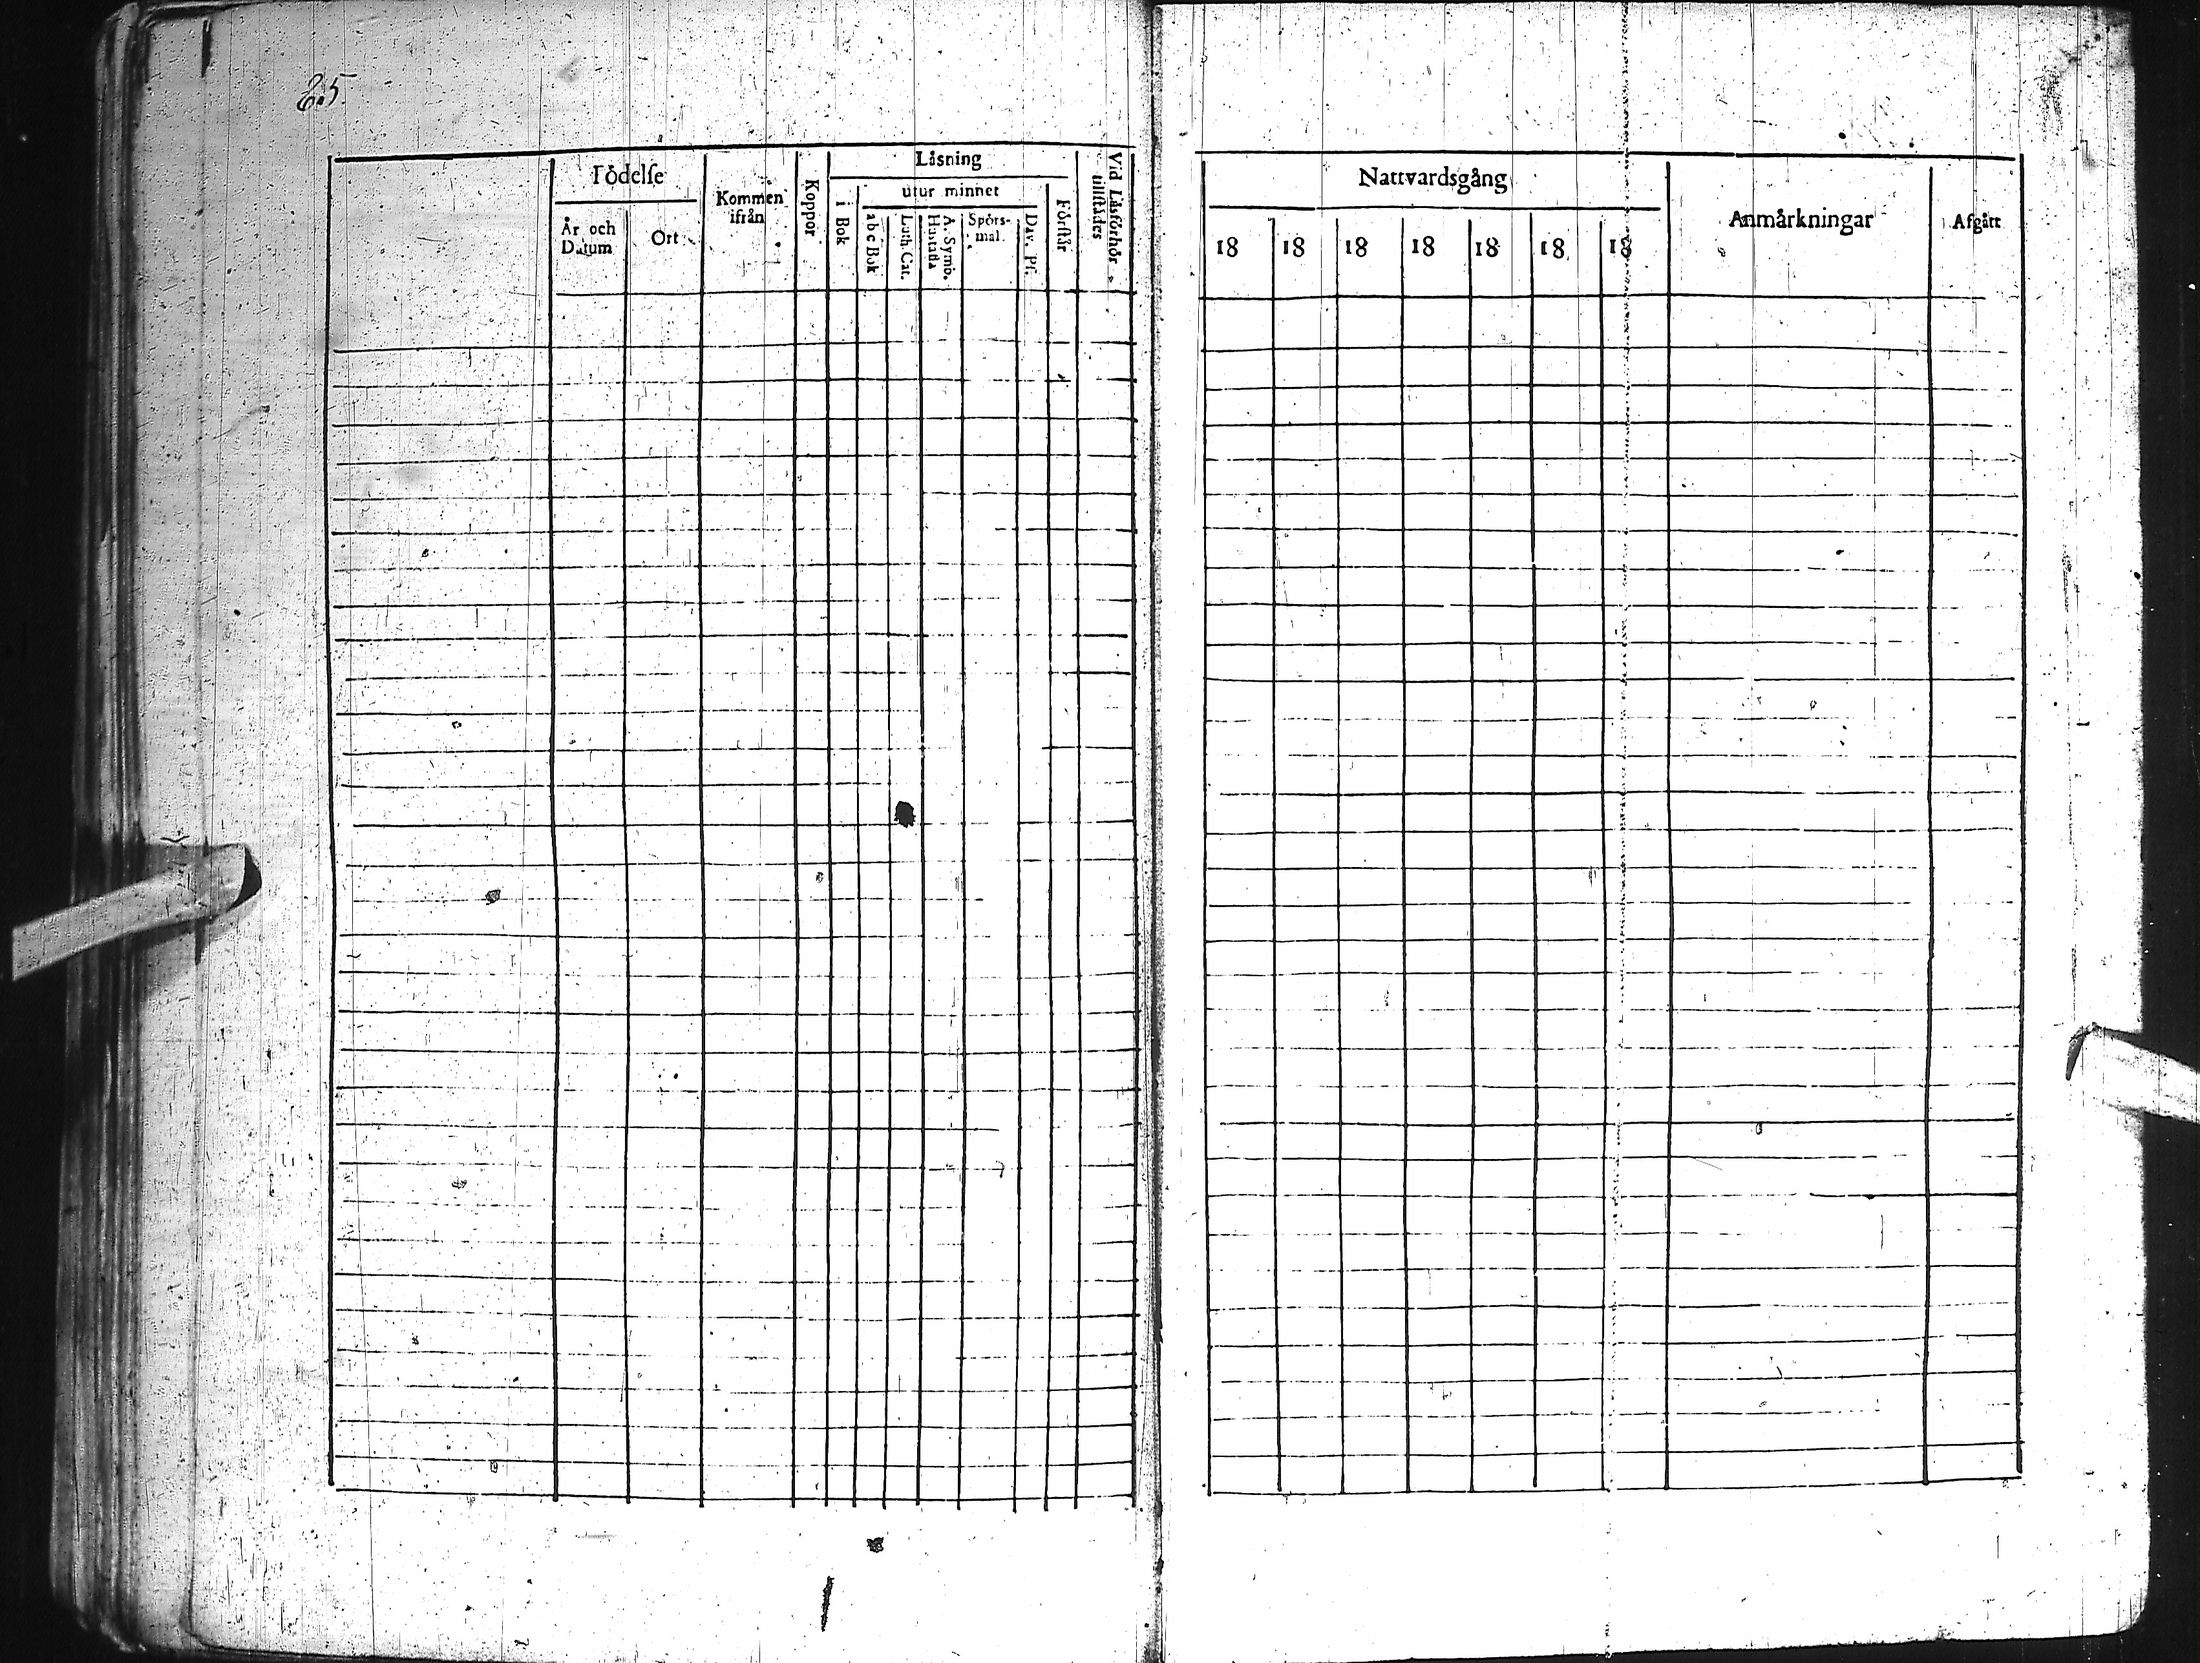 65.
Födelse
År och Datum
Ort
Kommen ifrån
Koppor
Låsning
i Bok
utur minnet
abc Bok
Luth. Cat.
A. Symb. Hustafla
Spörsmal.
Dav. Ps.
Förstår
Vid Låsförhör tillstådes
Nattvardsgång
18 18 18 18 18 18 18
Anmårkningar
Afgått